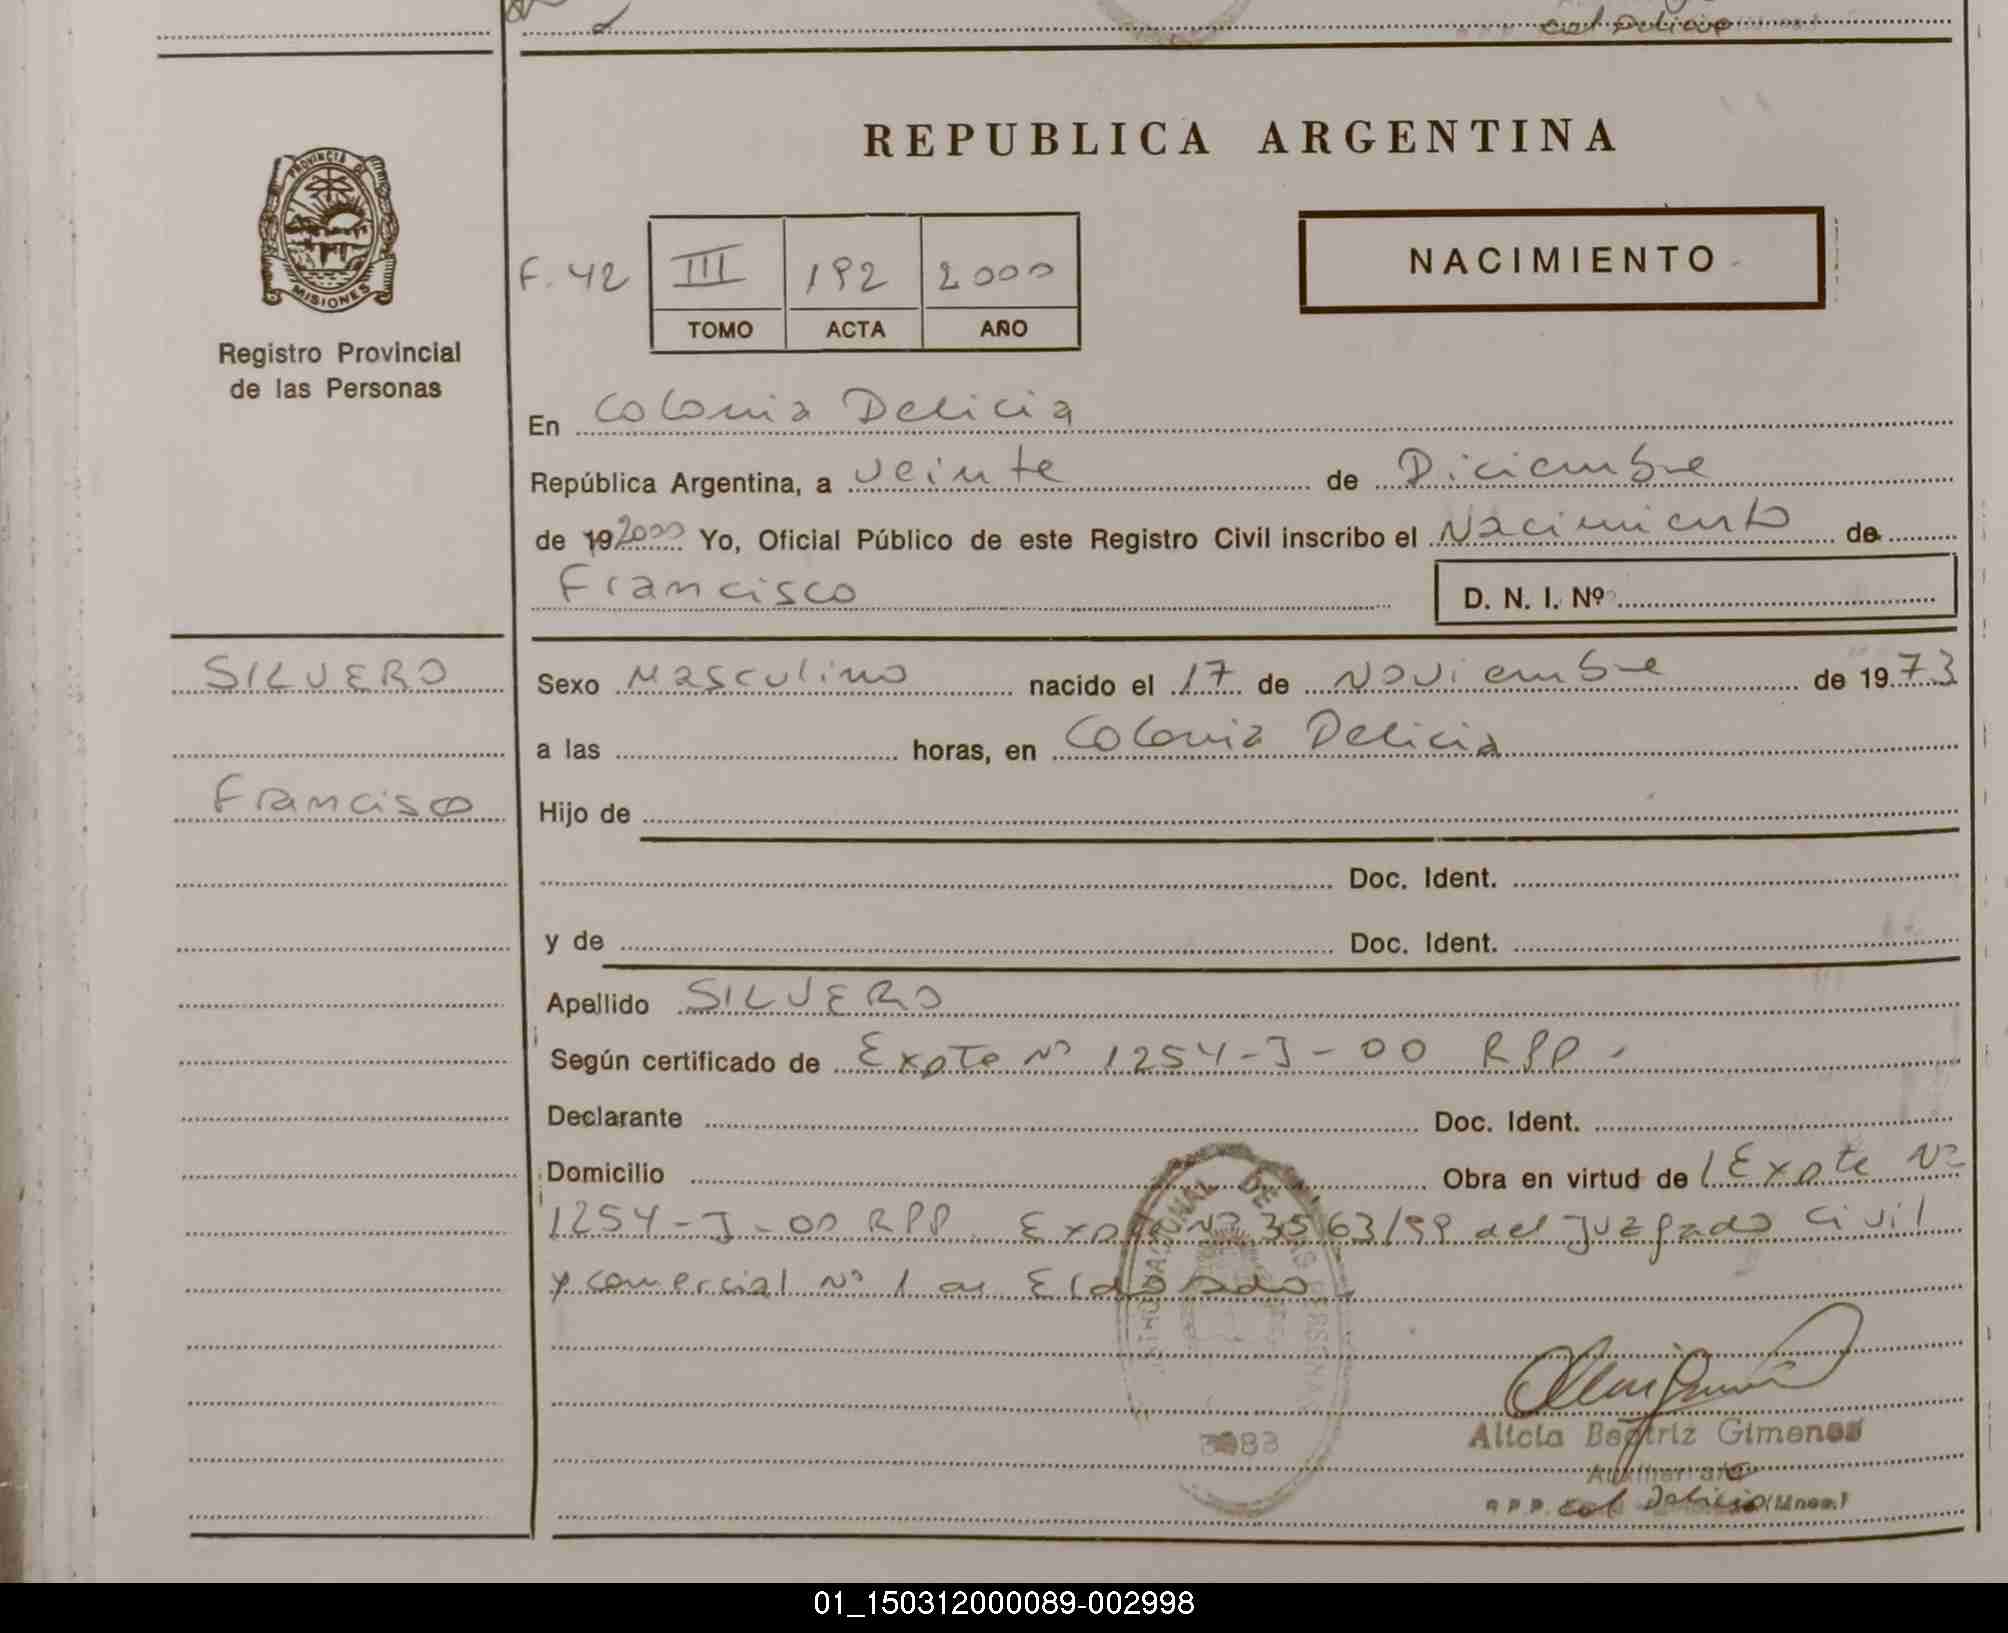 col Delicia
REPUBLICA ARGENTINA
PROVINCIA DE
MISIONES
Registro Provincial
de las Personas
F. 42
III 192 2000
TOMO ACTA AÑO
NACIMIENTO
En Colonia Delicia
República Argentina, a veinte de Diciembre
de 19 2000 Yo, Oficial Público de este Registro Civil inscribo el Nacimiento de
Francisco D. N. I. Nº
SILVERO
Francisco
Sexo Masculino nacido el 17 de Noviembre de 1973
a las horas, en Colonia Delicia
Hijo de
Doc. Ident.
y de Doc. Ident.
Apellido SILVERO
Según certificado de Expte Nº 1254-J-00 RPP.
Declarante Doc. Ident.
Domicilio Obra en virtud de Expte Nº
1254-J-00 RPP Expte Nº 3563/99 del Juzgado Civil
y comercial Nº 1 de Eldorado
DE LAS PERSONAS
Alicia Beatriz Gimenez
R P P. col Delicia (Mnes.)
01_150312000089-002998